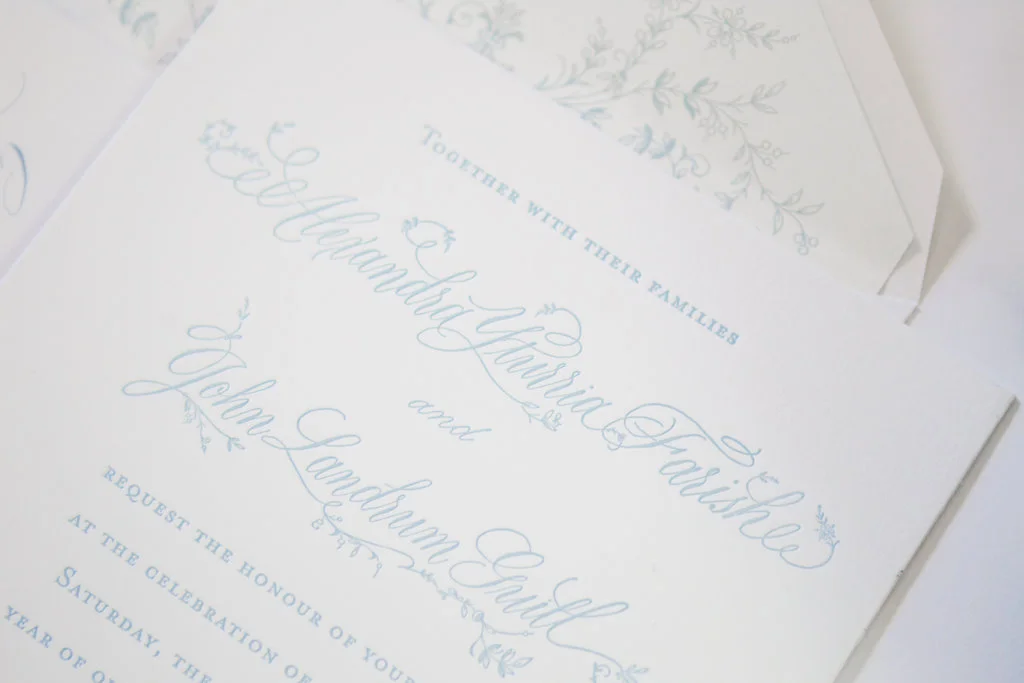 Together with their families
Alexandra Yturria Farish
and
John Landrum Guill
request the honour of your
at the celebration of
Saturday, the
year of